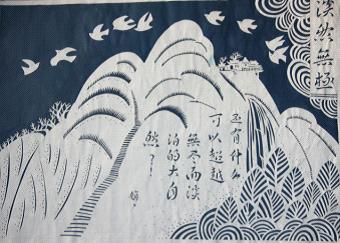 淡然無極
还有什么
可以超越
無尽而淡
泊的大自
然？